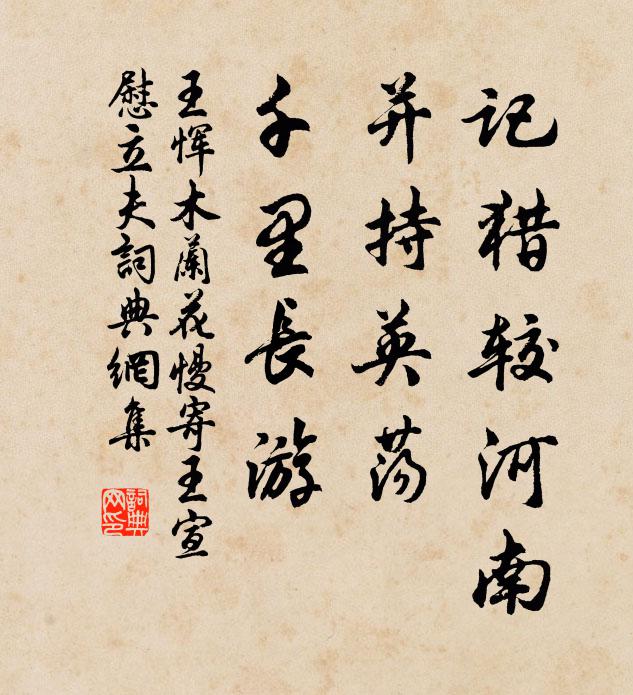 记猎较河南
并持英荡
千里長游
王恽木蘭花慢寄王宣
慰立夫詞典網集
詞典
网印